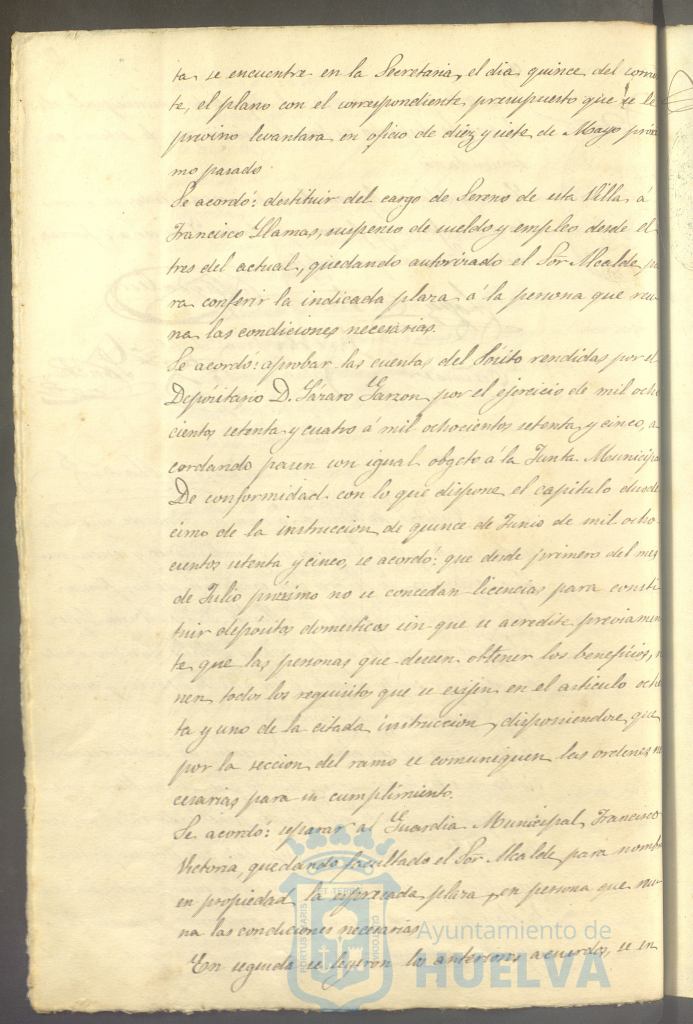 ta se encuentre en la Secretaria, el dia quince del corrie
te, el plano con el correspondiente presupuesto que se le
previno levantara en oficio de diez y siete de Mayo próxi
mo pasado.
Se acordó: destituir del cargo de Sereno de esta Villa, á
Francisco Llamas, suspenso de sueldo y empleo desde el
tres del actual, quedando autorizado el Sor Alcalde, pa
ra conferir la indicada plaza á la persona que reu
na las condiciones necesarias.
Se acordó: aprobar las cuentas del Pósito rendidas por el
Depósitario D. Lázaro Garzon, por el ejercicio de mil ocho
cientos setenta y cuatro á mil ochocientos setenta y cinco, a
cordando pasen con igual obgeto á la Junta Municipa
De conformidad con lo que dispone el capitulo duodé
cimo de la instruccion de quince de Junio de mil ocho
cientos setenta y cinco, se acordó: que desde primero del mes
de Julio próximo no se concedan licencias para consti
tuir depósitos domesticos sin que se acredite previamen
te que las personas que deseen obtener los beneficios,
nen todos los requisitos que se exijen en el articulo oche
ta y uno de la citada instruccion, disponiendose que
por la seccion del ramo se comuniquen las ordenes n
cesarias para su cumplimiento.
Se acordó: separar al Guardia Municipal, Francisco
Victoria, quedando facultado el Sor Alcalde para nomb
en propiedad la espresada plaza, en persona que reu
na las condiciones necesarias.
En seguida se leyeron los anteriores acuerdos, se in
PORTUS MARIS ET TERRÆ CUSTODIA
Ayuntamiento de
HUELVA